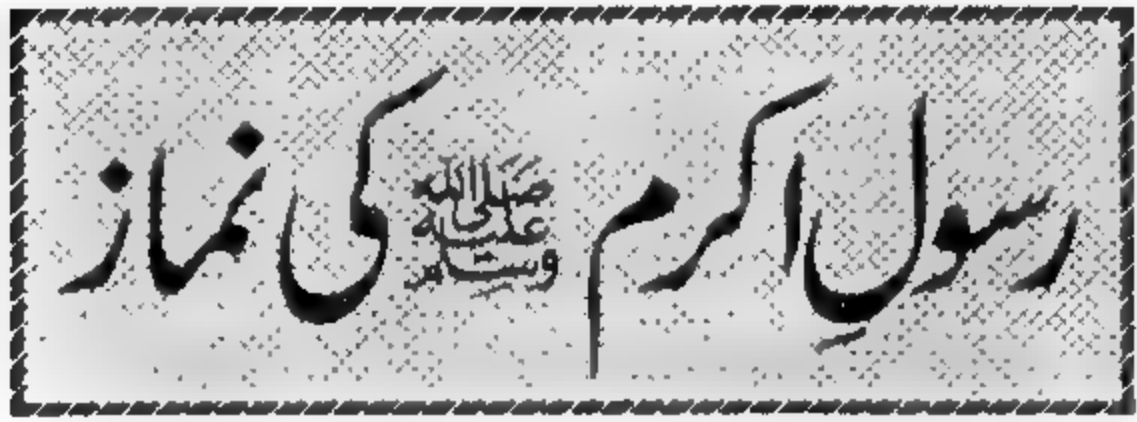 رسولِ اکرم صلی اللہ علیہ وسلم کی نماز